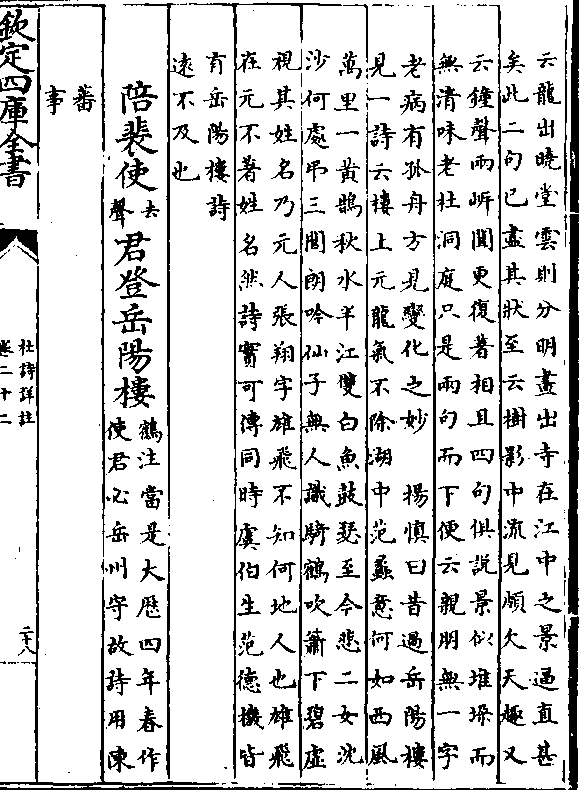 云龍出曉堂雲則分明畫出寺在江中之景過直甚
矣此二句已盡其狀至云樹影中流見頗欠天趣又
云鐘聲兩岍聞更復著相且四句俱説景似堆垜而
無清味老杜洞庭只是兩句而下便云親朋無一字
老病有孤舟方見變化之妙　楊慎曰昔過岳陽樓
見一詩云樓上元龍氣不除湖中范蠡意何如西風
萬里一黄鵠秋水半江雙白魚鼓瑟至今悲二女沈
沙何處弔三閭朗吟仙子無人識騎鶴吹簫下碧虛
視其姓名乃元人張翔字雄飛不知何地人也雄飛
在元不著姓名然詩實可傳同時虞伯生范德機皆
有岳陽樓詩
遠不及也
陪裴使去聲君登岳陽樓
鶴注當是大厯四年春作
使君必岳州守故詩用陳
蕃
事
欽定四庫全書
杜詩詳註
卷二十二
二十八